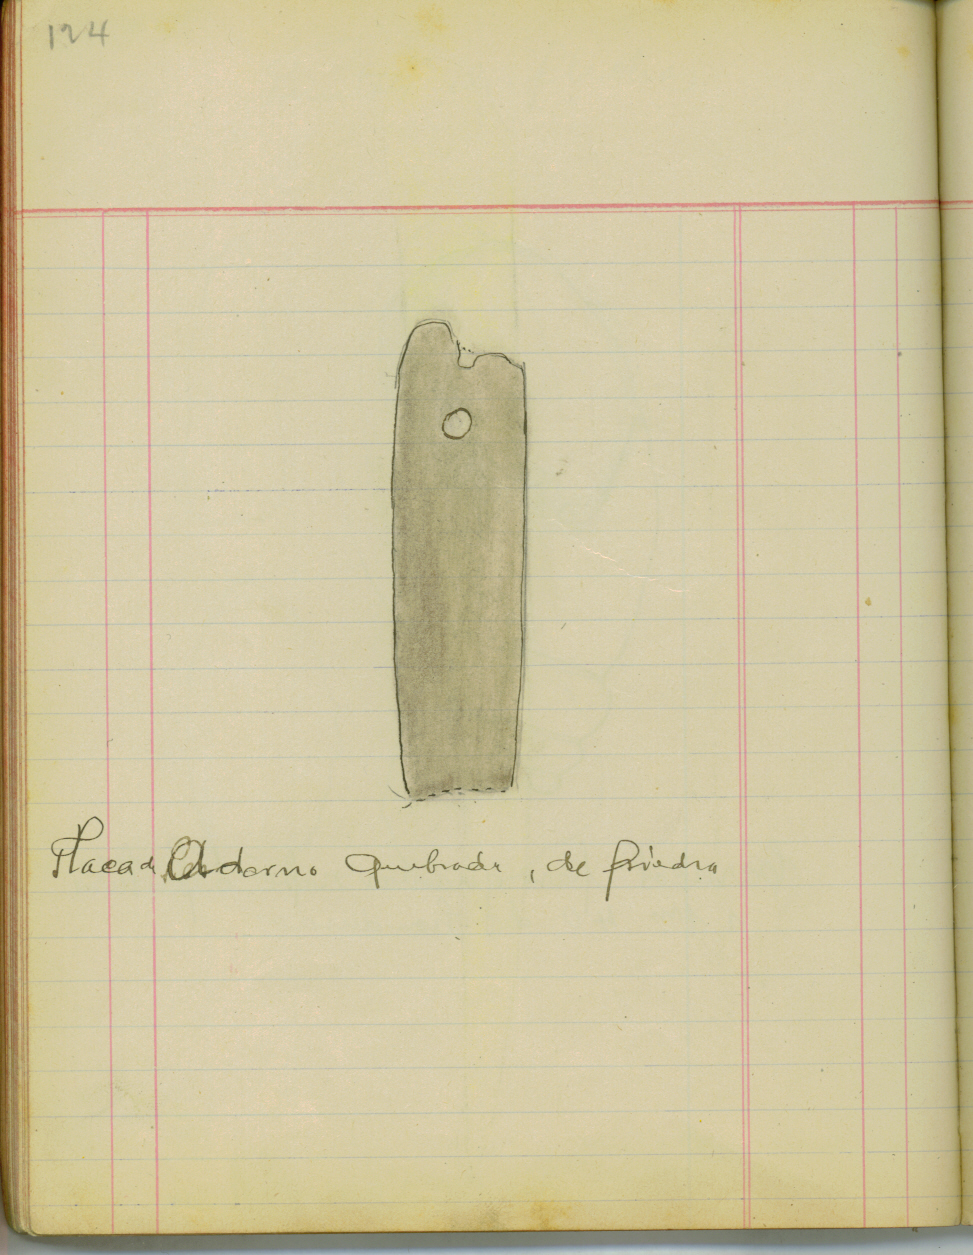 124
Placa de Adorno Quebrada, de piedra